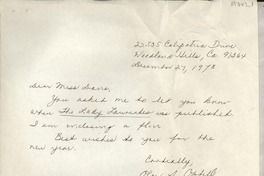 22535 Calipatria Drive
Woodland Hills, Ca 91364
December 27, 1972
Dear Miss
You asked me to let you know
when The Lady was published
I am enclosing a
Best wishes to you for the
new year.
Cordially,